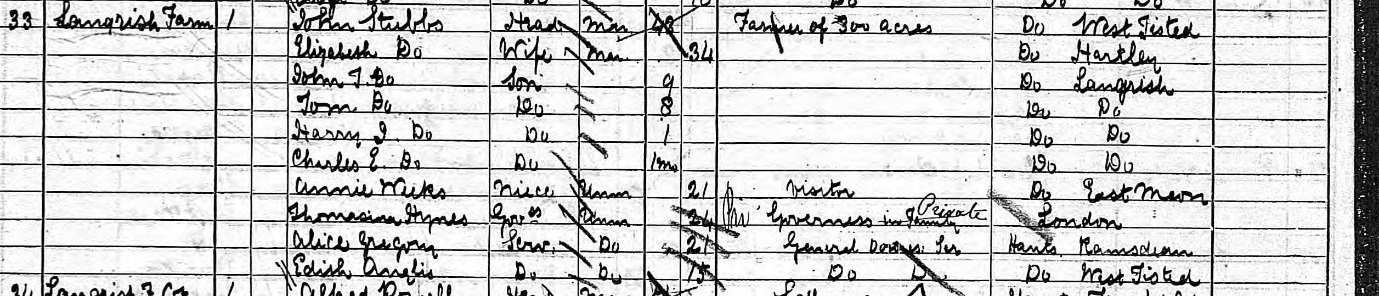 Do Do Do Do Do
33 Langrish Farm 1 John Stubbs Head Mar Farmer of 300 acres Do West Tisted
Elizabeth Do Wife Mar 34 Do Hartley
John T. Do Son 9 Do Langrish
Tom Do Do 8 Do Do
Harry J. Do Do 1 Do Do
Charles E. Do Do 1mo Do Do
Annie Weeks Niece Unm 21 Visitor Do East Meon
Thomasina Hynes Govess Unm 24 Governess in Private Family London
Alice Gregory Serv. Do 21 General Domes: Ser Hants Ramsdean
Edith Do Do 15 Do Do Do West Tisted
34 1 Alfred